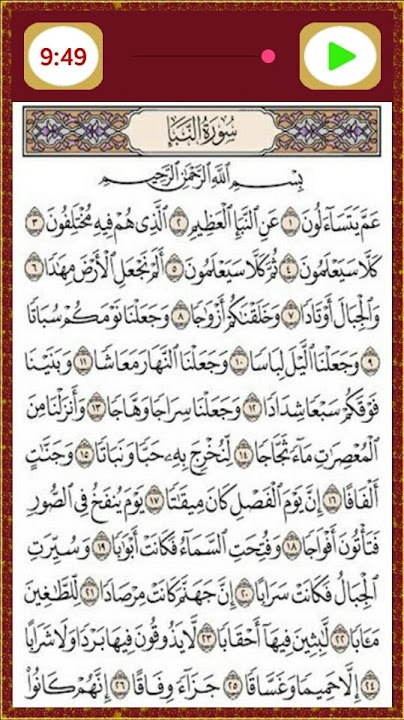 9:49
سُورَةُ النَّبَإِ
بِسْمِ ٱللَّهِ ٱلرَّحْمَٰنِ ٱلرَّحِيمِ
عَمَّ يَتَسَآءَلُونَ ١ عَنِ ٱلنَّبَإِ ٱلْعَظِيمِ ٢ ٱلَّذِى هُمْ فِيهِ مُخْتَلِفُونَ ٣
كَلَّا سَيَعْلَمُونَ ٤ ثُمَّ كَلَّا سَيَعْلَمُونَ ٥ أَلَمْ نَجْعَلِ ٱلْأَرْضَ مِهَٰدًا ٦
وَٱلْجِبَالَ أَوْتَادًا ٧ وَخَلَقْنَٰكُمْ أَزْوَٰجًا ٨ وَجَعَلْنَا نَوْمَكُمْ سُبَاتًا
٩ وَجَعَلْنَا ٱلَّيْلَ لِبَاسًا ١٠ وَجَعَلْنَا ٱلنَّهَارَ مَعَاشًا ١١ وَبَنَيْنَا
فَوْقَكُمْ سَبْعًا شِدَادًا ١٢ وَجَعَلْنَا سِرَاجًا وَهَّاجًا ١٣ وَأَنزَلْنَا مِنَ
ٱلْمُعْصِرَٰتِ مَآءً ثَجَّاجًا ١٤ لِّنُخْرِجَ بِهِۦ حَبًّا وَنَبَاتًا ١٥ وَجَنَّٰتٍ
أَلْفَافًا ١٦ إِنَّ يَوْمَ ٱلْفَصْلِ كَانَ مِيقَٰتًا ١٧ يَوْمَ يُنفَخُ فِى ٱلصُّورِ
فَتَأْتُونَ أَفْوَاجًا ١٨ وَفُتِحَتِ ٱلسَّمَآءُ فَكَانَتْ أَبْوَٰبًا ١٩ وَسُيِّرَتِ
ٱلْجِبَالُ فَكَانَتْ سَرَابًا ٢٠ إِنَّ جَهَنَّمَ كَانَتْ مِرْصَادًا ٢١ لِّلطَّٰغِينَ
مَـَٔابًا ٢٢ لَّٰبِثِينَ فِيهَآ أَحْقَابًا ٢٣ لَّا يَذُوقُونَ فِيهَا بَرْدًا وَلَا شَرَابًا
٢٤ إِلَّا حَمِيمًا وَغَسَّاقًا ٢٥ جَزَآءً وِفَاقًا ٢٦ إِنَّهُمْ كَانُوا۟